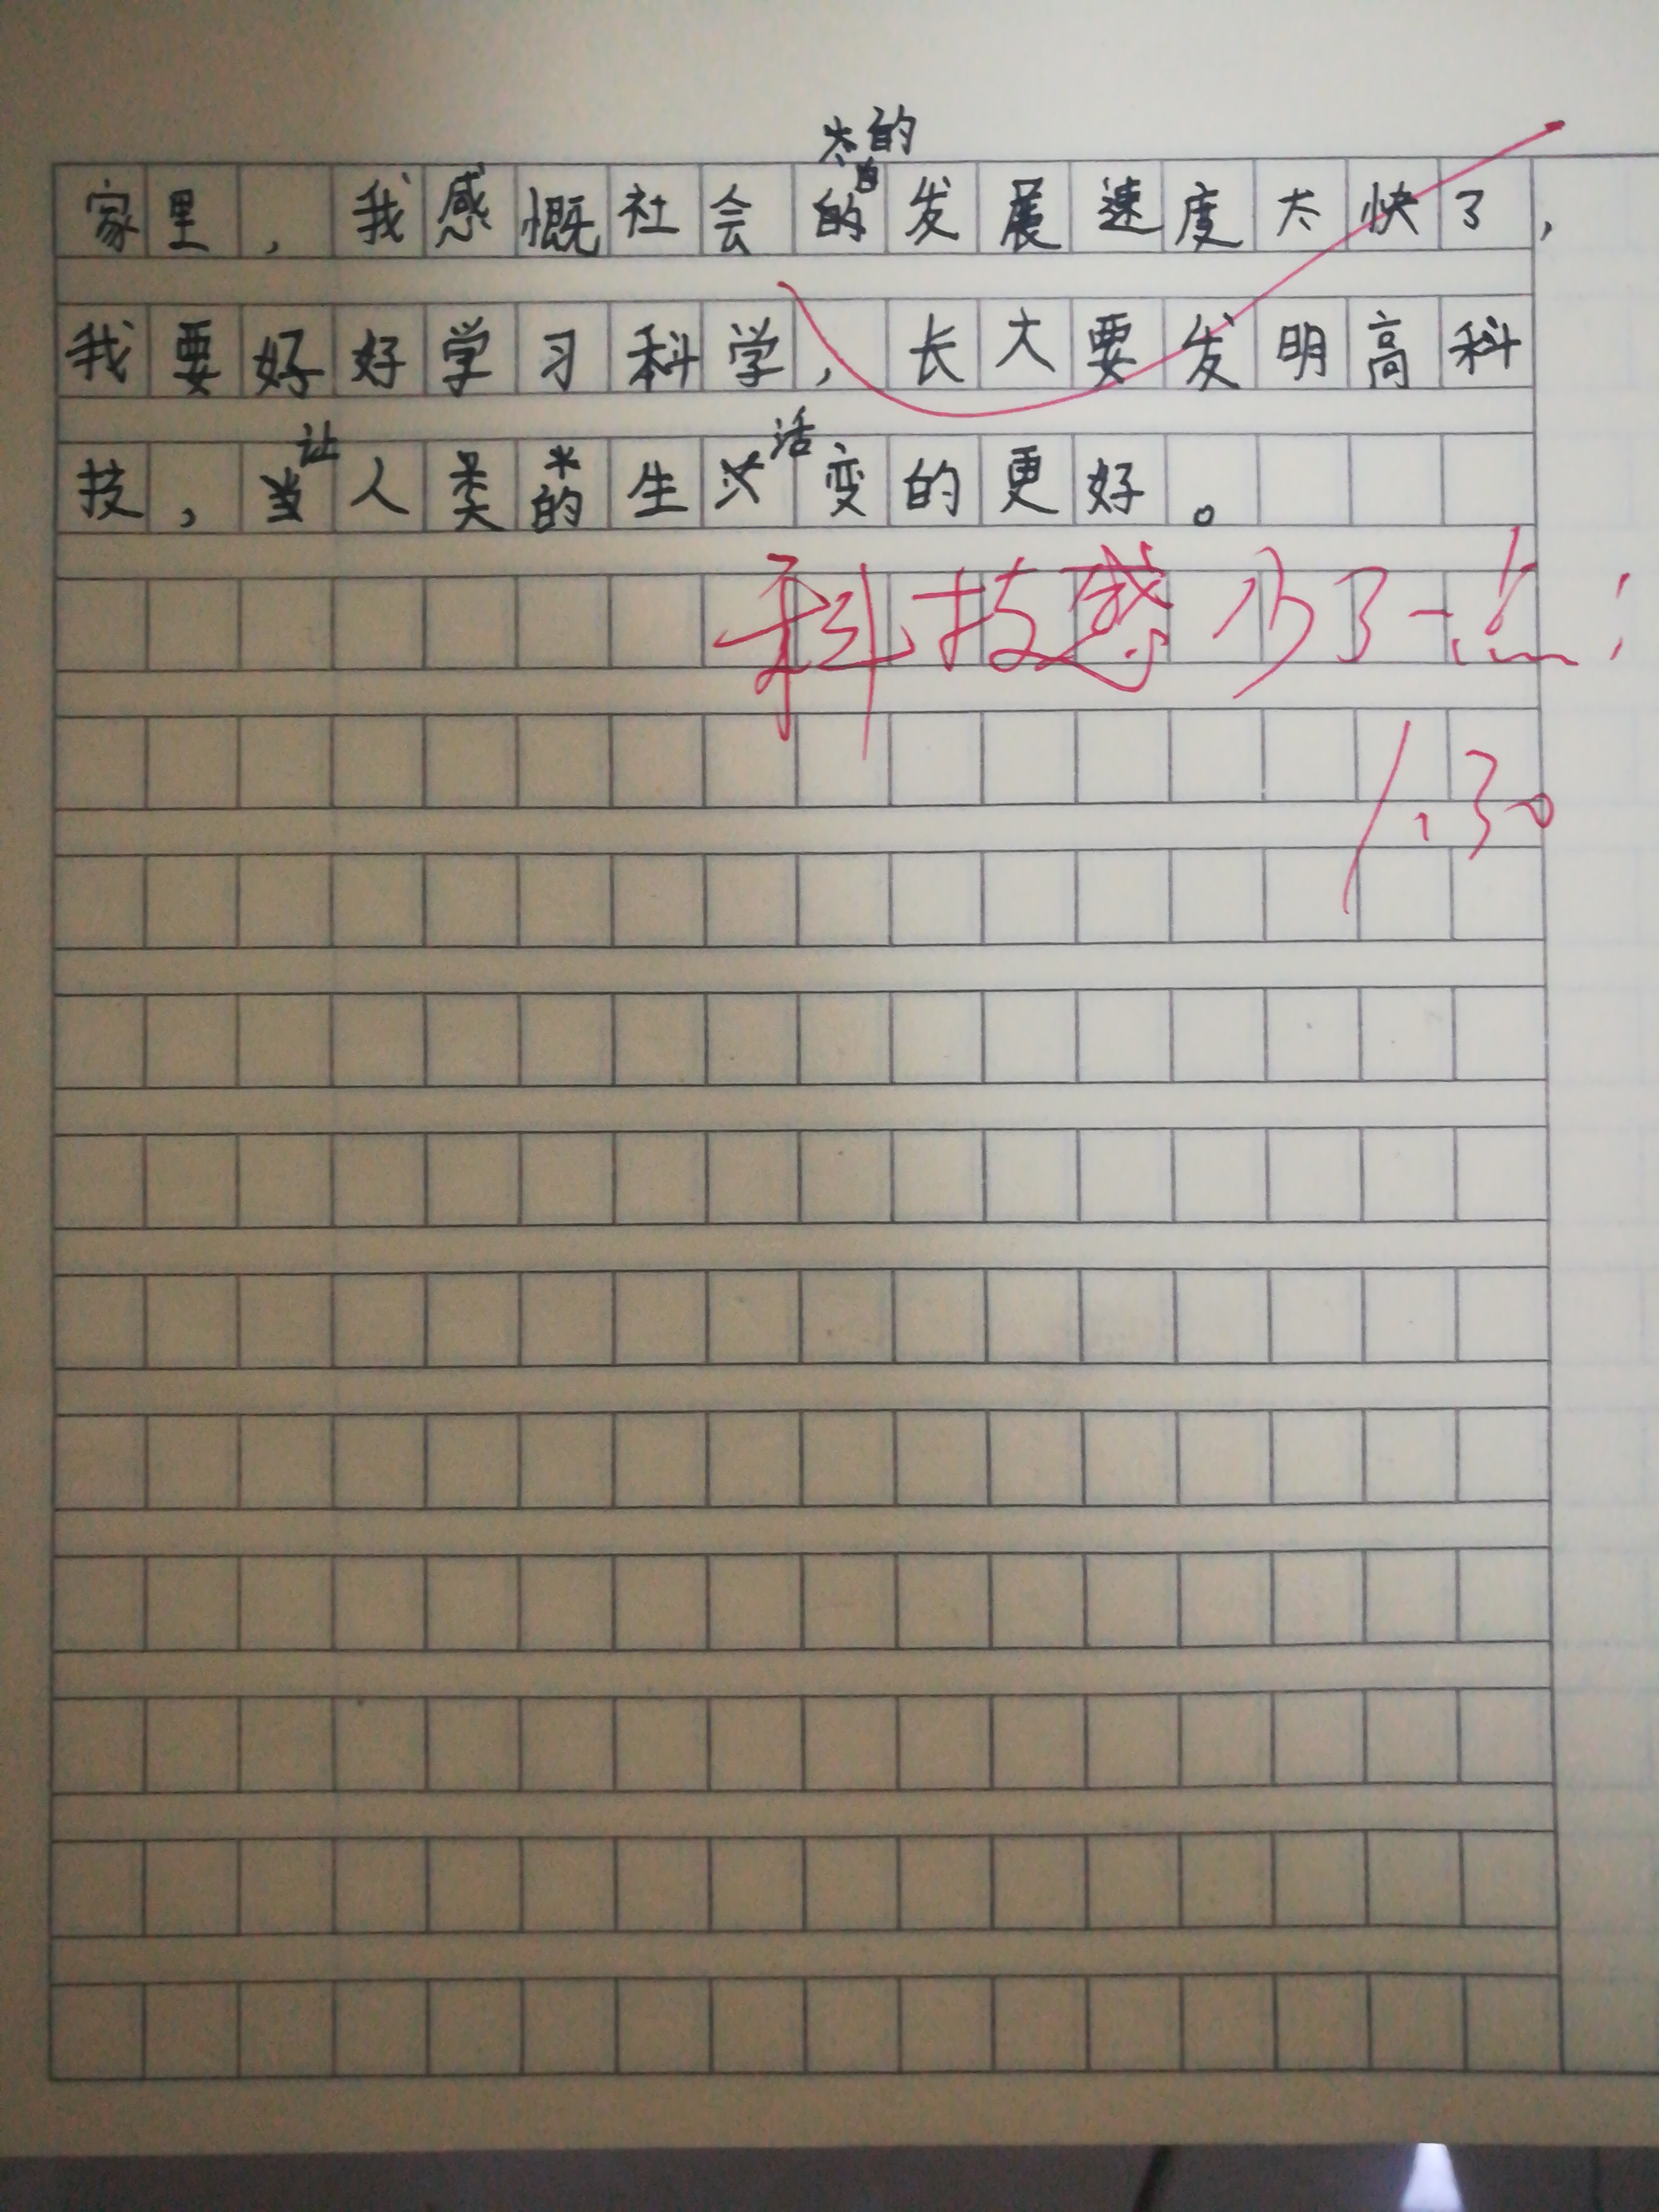 家里，我感慨社会的发展速度太快了，
我要好好学习科学，长大要发明高科
技，让人类的生活变的更好。
科技感少了一点！
1.30